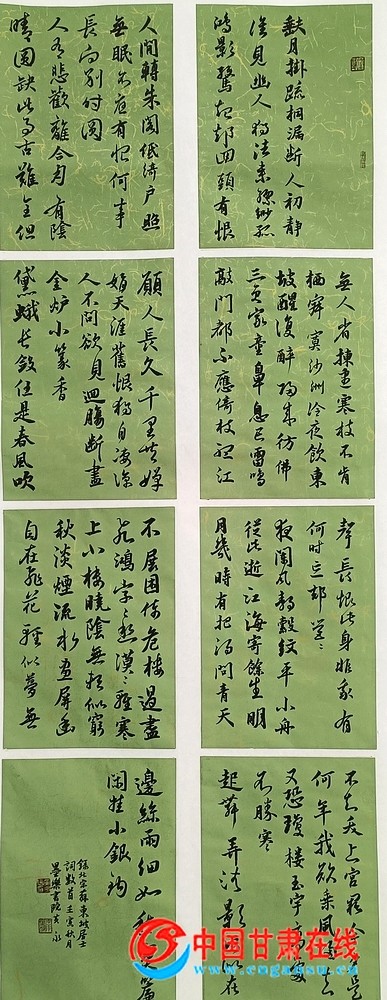 缺月掛疏桐漏断人初静
谁見幽人獨往来缥缈孤
鴻影驚起却回頭有恨
無人省揀盡寒枝不肯
栖寂寞沙洲冷夜飲東
坡醒復醉歸来彷彿
三更家童鼻息已雷鳴
敲門都不應倚杖聽江
聲長恨此身非我有
何時忘却營々
夜闌風静縠紋平小舟
從此逝江海寄餘生明
月幾時有把酒問青天
不知天上宫闕今夕是
何年我欲乘風歸去
又恐瓊楼玉宇高處
不勝寒
起舞弄清影何似在
人間轉朱閣低绮户照
無眠不應有恨何事
長向别时圆
人有悲歡離合月有陰
晴圆缺此事古難全但
願人長久千里共嬋
娟天涯舊恨獨自凄凉
人不問欲見迴腸斷盡
金炉小篆香
黛蛾长敛任是春風吹
不展困倚危樓過盡
飛鴻字々愁漠々輕寒
上小樓曉陰無賴似窮
秋淡煙流水画屏幽
自在飛花輕似夢無
邊絲雨細如愁寶簾
閑挂小銀鈎
錄北宋蘇東坡居士
詞数首壬寅秋月
墨樂書院
中国甘肃在线
www.cngansu.cn